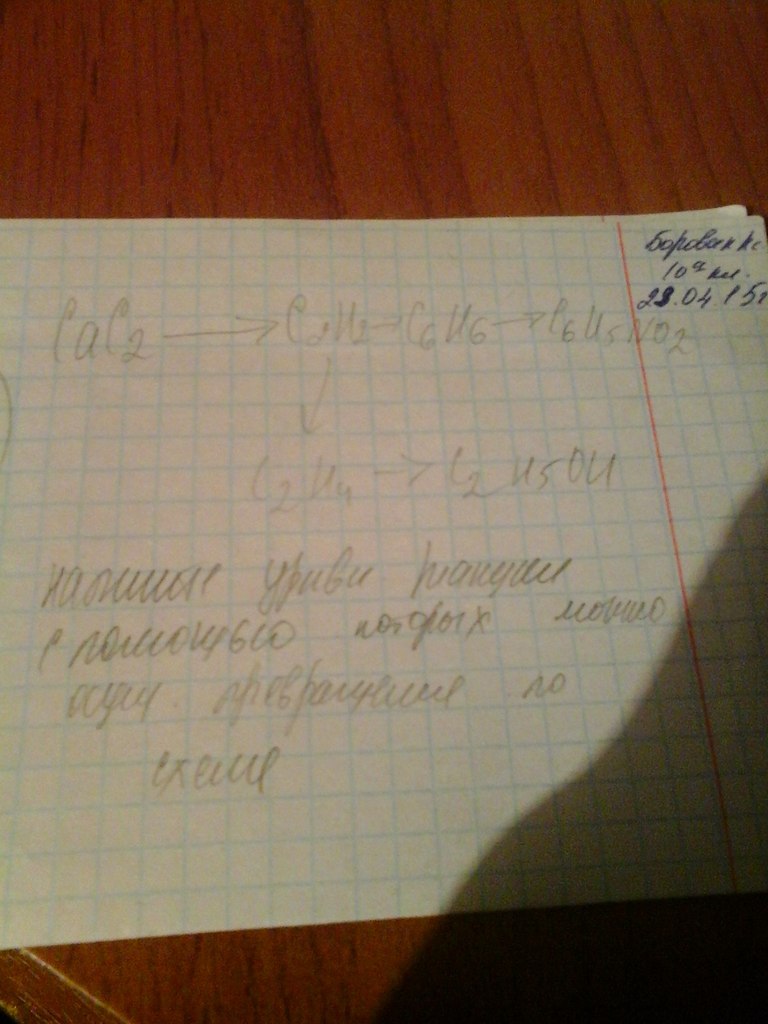 10а кл.
28.04.15г
CaC2 → C2H2 → C6H6 → C6H5NO2
↓
C2H4 → C2H5OH
напишите уравн реакции
с помощью которых можно
осущ. превращение по
схеме